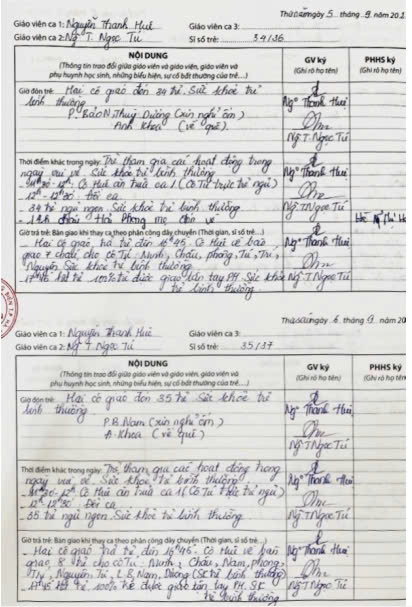 Thứ năm ngày 5 tháng 9 năm 202
Giáo viên ca 1: Nguyễn Thanh Huê Giáo viên ca 3:
Giáo viên ca 2: Ng T. Ngọc Tú Sĩ số trẻ: 34/36
NỘI DUNG
(Thông tin trao đổi giữa giáo viên và giáo viên, giáo viên và
phụ huynh học sinh, những biểu hiện, sự cố bất thường của trẻ...)
GV ký
(Ghi rõ họ tên)
PHHS ký
(Ghi rõ họ tên)
Giờ đón trẻ: Hai cô giáo đón 34 trẻ. Sức khỏe trẻ
bình thường
P. Bảo N, Thuỳ Dương (xin nghỉ ốm)
Anh Khoa (về quê).
Ng Thanh Huê
Ng T. Ngọc Tú
Thời điểm khác trong ngày: Trẻ tham gia các hoạt động trong
ngày vui vẻ. Sức khỏe trẻ bình thường
- 12h Cô Huê ăn trưa ca 1 (Cô Tú trực trẻ ngủ)
- 12h - 12h30: Đổi ca
- 34 trẻ ngủ ngon. Sức khoẻ trẻ bình thường
Hải Phong mẹ đón về
Ng Thanh Huê
Ng T Ngọc Tú
Giờ trả trẻ: Bàn giao khi thay ca theo phân công dây chuyền (Thời gian, sĩ số trẻ...)
- Hai cô giáo trả trẻ đến 16h45. Cô Huê về bàn
giao 7 cháu cho cô Tú: Minh, Châu, Phong, Tú, Trí,
Nguyên. Sức khỏe trẻ bình thường
- 17h45 hết trẻ 100% trẻ được giao tận tay PH. Sức khỏe
trẻ bình thường
Ng Thanh Huê
Ng T Ngọc Tú
Thứ sáu ngày 6 tháng 9 năm 20
Giáo viên ca 1: Nguyễn Thanh Huê Giáo viên ca 3:
Giáo viên ca 2: Ng T Ngọc Tú Sĩ số trẻ: 35/37
NỘI DUNG
(Thông tin trao đổi giữa giáo viên và giáo viên, giáo viên và
phụ huynh học sinh, những biểu hiện, sự cố bất thường của trẻ...)
GV ký
(Ghi rõ họ tên)
PHHS ký
(Ghi rõ họ tên)
Giờ đón trẻ: Hai cô giáo đón 35 trẻ. Sức khỏe trẻ
bình thường
P.B. Nam (xin nghỉ ốm)
A. Khoa (về quê)
Ng Thanh Huê
Ng T Ngọc Tú
Thời điểm khác trong ngày: Trẻ tham gia các hoạt động trong
ngày vui vẻ. Sức khỏe trẻ bình thường
- 12h Cô Huê ăn trưa ca 1 (Cô Tú trực trẻ ngủ)
- 12h - 12h30: Đổi ca
- 35 trẻ ngủ ngon. Sức khoẻ trẻ bình thường
Ng Thanh Huê
Ng T Ngọc Tú
Giờ trả trẻ: Bàn giao khi thay ca theo phân công dây chuyền (Thời gian, sĩ số trẻ...)
- Hai cô giáo trả trẻ đến 16h45. Cô Huê về bàn
giao 8 trẻ cho cô Tú: Minh, Châu, Nam, Phong,
Nguyên, Tú, L.B. Nam, Dương (SK trẻ bình thường)
- 17h45 hết trẻ 100% trẻ được giao tận tay PH. SK
trẻ bình thường
Ng Thanh Huê
Ng T Ngọc Tú